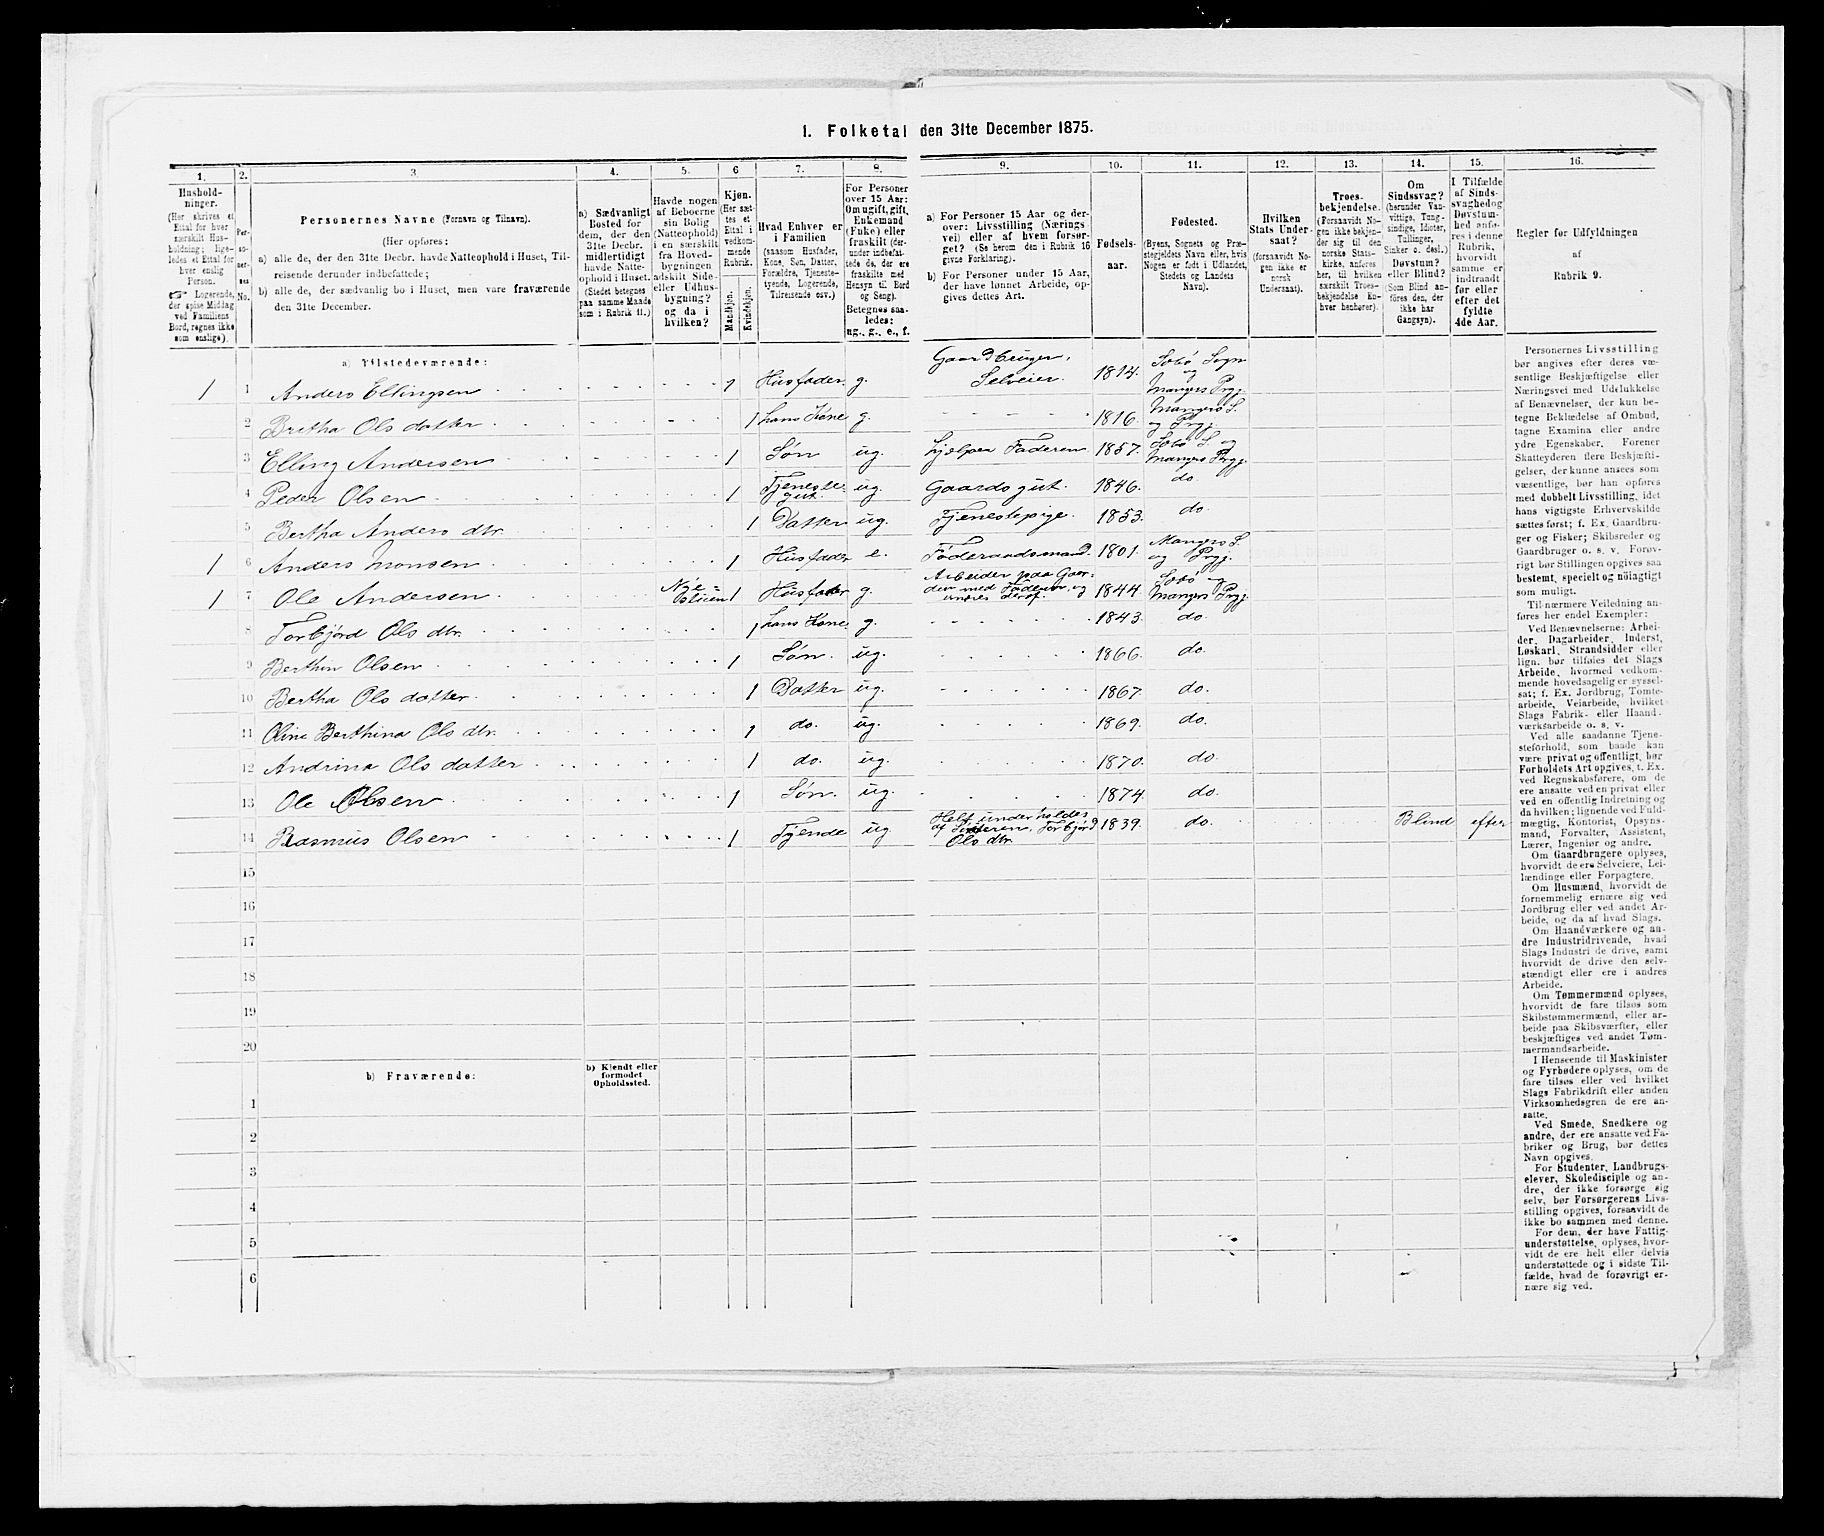 1. Folketal den 31te December 1875.
1. 2. 3. 4. 5. 6 7. 8. 9. 10. 11. 12. 13. 14. 15. 16.
Hushold-
ninger.
(Her skrives et
Ettal for hver
særskilt Hus-
holdning; lige-
ledes et Ettal for
hver enslig
Person.
☞ Logerende,
der spise Middag
ved Familiens
Bord, regnes ikke
som enslige).
Per-
so-
ner-
nes
No.
Personernes Navne (Fornavn og Tilnavn).
(Her opføres:
a) alle de, der den 31te Decbr. havde Natteophold i Huset, Til-
reisende derunder indbefattede;
b) alle de, der sædvanlig bo i Huset, men vare fraværende
den 31te December.
a) Sædvanligt
Bosted for
dem, der den
31te Decbr.
midlertidigt
havde Natte-
ophold i Huset.
(Stedet betegnes
paa samme Maade
som i Rubrik 11.)
Havde nogen
af Beboerne
sin Bolig
(Natteophold)
i en særskilt
fra Hoved-
bygningen
adskilt Side-
eller Udhus-
bygning?
og da i
hvilken?
Kjøn.
(Her sæt-
tes et
Ettal i
vedkom-
mende
Rubrik.
Mandkjøn.
Kvindekjøn.
Hvad Enhver er
i Familien
(saasom Husfader,
Kone, Søn, Datter,
Forældre, Tjeneste-
tyende, Logerende,
Tilreisende osv.)
For Personer
over 15 Aar:
Om ugift, gift,
Enkemand
(Enke) eller
fraskilt (der-
under indbefat-
tede de, der ere
fraskilte med
Hensyn til Bord
og Seng).
Betegnes saa-
ledes:
ug., g., e., f.
a) For Personer 15 Aar og der-
over: Livsstilling (Nærings-
vei) eller af hvem forsør-
get? (Se herom den i Rubrik 16
givne Forklaring).
b) For Personer under 15 Aar,
der have lønnet Arbeide, op-
gives dettes Art.
Fødsels-
aar.
Fødested.
(Byens, Sognets og Præ-
stegjeldets Navn eller, hvis
Nogen er født i Udlandet,
Stedets og Landets
Navn).
Hvilken
Stats Under-
saat?
(forsaavidt No-
gen ikke er
norsk
Undersaat).
Troes-
bekjendelse.
(Forsaavidt No-
gen ikke bekjen-
der sig til den
norske Stats-
kirke, anføres
her, til hvilken
særskilt Troes-
bekjendelse En-
hver henhører).
Om
Sindssvag?
(herunder Van-
vittige, Tung-
sindige, Idioter,
Tullinger,
Sinker o. desl.)
Døvstum?
eller Blind?
(Som Blind an-
føres den, der
ikke har
Gangsyn).
I Tilfælde
af Sinds-
svaghed og
Døvstum-
hed anfø-
res i denne
Rubrik,
hvorvidt
samme er
indtraadt
før eller
efter det
fyldte
4de Aar.
Regler for Udfyldningen
af
Rubrik 9.
a) Tilstedeværende:
1 1 Anders Ellingsen 1 Husfader g. Gaardbruger, Selveier. 1814. Sebø Sogn og Mangers Prgj.
2 Bretha Olsdatter 1 hans Kone g. 1816. Mangers S. og Prgj.
3 Elling Andersen 1 Søn ug. hjelper Faderen 1857. Sebø S. og Mangers Prgj.
4 Peder Olsen 1 Tjeneste-gut. ug Gaardsgut. 1846. do.
5 Bertha Anders dtr. 1 Datter ug. Tjenestepige. 1853. do.
1 6 Anders Monsen 1 Husfader e. Föderaadsmand. 1801. Mangers S. og Prgj.
1 7 Ole Andersen 1 Husfader g. Arbeider paa Gaar-den med Faderen, og 1844. Sebø og Mangers Prgj.
8 Torbjörd Ols dtr. 1 hans Kone g. 1843. do.
9 Berthin Olsen 1 Søn. ug. 1866. do.
10 Bertha Olsdatter 1 Datter ug. 1867. do.
11 Oline Berthina Ols dtr. 1 do. ug. 1869. do.
12 Andrina Olsdatter 1 do. ug. 1870. do.
13 Ole Olsen 1 Søn. ug. 1874. do.
14 Rasmus Olsen 1 Tyende ug. Helt underholdes af Søsteren, Torbjörd Ols dtr. 1839. do. Blind efter
15
16
17
18
19
20
b) Fraværende:
b) Kjendt eller
formodet
Opholdssted.
1
2
3
4
5
6
Personernes Livsstilling
bør angives efter deres væ-
sentlige Beskjæftigelse eller
Næringsvei med Udelukkelse
af Benævnelser, der kun be-
tegne Beklædelse af Ombud,
tagne Examina eller andre
ydre Egenskaber. Forener
Skatteyderen flere Beskjæfti-
gelser, der kunne ansees som
væsentlige, bør han opføres
med dobbelt Livsstilling, idet
hans vigtigste Erhvervskilde
sættes først; f. Ex. Gaardbru-
ger og Fisker; Skibsreder og
Gaardbruger o. s. v. Forøv-
rigt bør Stillingen opgives saa
bestemt, specielt og nøiagtigt
som muligt.
Til nærmere Veiledning an-
føres her endel Exempler:
Ved Benævnelserne: Arbei-
der, Dagarbeider, Inderst,
Løskarl, Strandsidder eller
lign. bør tilføies det Slags
Arbeide, hvormed vedkom-
mende hovedsagelig er syssel-
sat; f. Ex. Jordbrug, Tomte-
arbeide, Veiarbeide, hvilket
Slags Fabrik- eller Haand-
værksarbeide o. s. v.
Ved alle saadanne Tjene-
steforhold, som baade kan
være privat og offentligt, bør
Forholdets Art opgives, t. Ex.
ved Regnskabsførere, om de
ere ansatte ved en privat eller
ved en offentlig Indretning og
da hvilken; lignende ved Fuld-
mægtig, Kontorist, Opsyns-
mand, Forvalter, Assistent,
Lærer, Ingeniør og andre.
Om Gaardbrugere oplyses,
hvorvidt de ere Selveiere, Lei-
lændinge eller Forpagtere.
Om Husmænd, hvorvidt de
fornemmelig ernære sig ved
Jordbrug eller ved andet Ar-
beide, og da af hvad Slags.
Om Haandværkere og an-
dre Industridrivende, hvad
Slags Industri de drive, samt
hvorvidt de drive den selv-
stændigt eller ere i andres
Arbeide.
Om Tømmermænd oplyses,
hvorvidt de fare tilsøs som
Skibstømmermænd, eller ar-
beide paa Skibsværfter, eller
beskjæftiges ved andet Tøm-
mermandsarbeide.
I Henseende til Maskinister
og Fyrbødere oplyses, om de
fare tilsøs eller ved hvilket
Slags Fabrikdrift eller anden
Virksomhedsgren de ere an-
satte.
Ved Smede, Snedkere og
andre, der ere ansatte ved Fa-
briker og Brug, bør dettes
Navn opgives.
For Studenter, Landbrugs-
elever, Skoledisciple og an-
dre, der ikke forsørge sig
selv, bør Forsørgerens Livs-
stilling opgives, forsaavidt de
ikke bo sammen med denne.
For dem, der have Fattig-
understøttelse, oplyses, hvor-
vidt de ere helt eller delvis
understøttede og i sidste Til-
fælde, hvad de forøvrigt er-
nære sig ved.